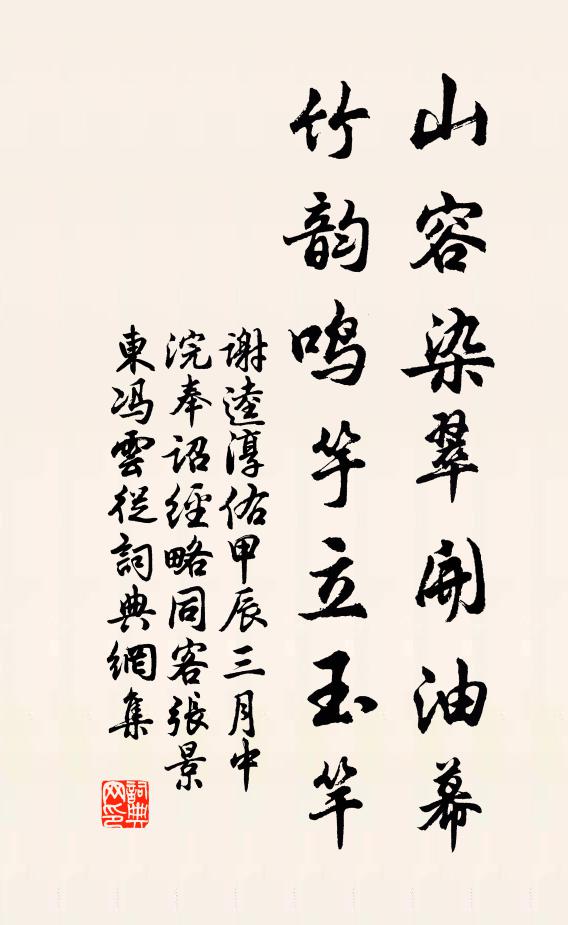 山容染翠開油幕
竹韵鳴竽立玉竿
謝逵淳佑甲辰三月中
浣奉詔經略同客張景
東馮雲從詞典網集
詞典
网印